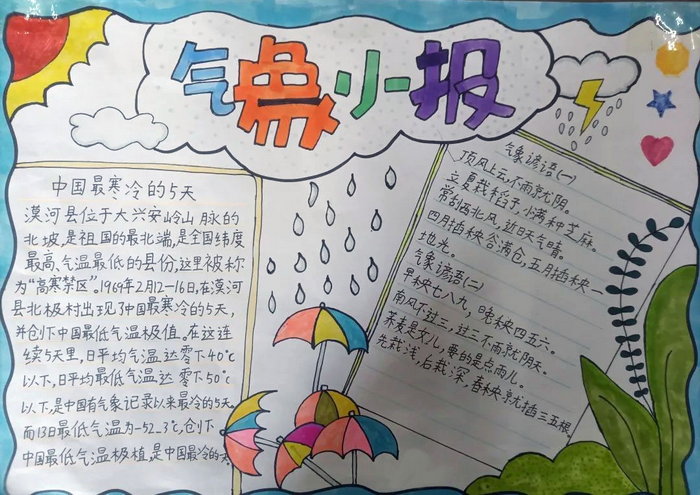 气象小报
中国最寒冷的5天
漠河县位于大兴安岭山脉的
北坡,是祖国的最北端,是全国纬度
最高、气温最低的县份,这里被称
为“高寒禁区”。1969年2月12-16日,在漠河
县北极村出现了中国最寒冷的5天,
并创下中国最低气温极值。在这连
续5天里,日平均气温达零下40℃
以下,日平均最低气温达零下50℃
以下,是中国有气象记录以来最冷的5天。
而13日最低气温为-52.3℃,创下
中国最低气温极植,是中国最冷的天
气象谚语(一)
顶风上云,不雨就阴。
立夏栽稻子,小满种芝麻。
常刮西北风,近日天气晴。
四月插秧谷满仓,五月插秧一
地光。
气象谚语(二)
早秧七八九,晚秧四五六。
南风不过三,过三不雨就阴天。
荞麦是女儿,要的是点雨儿。
先栽浅,后栽深,春秧京尤插三五根。